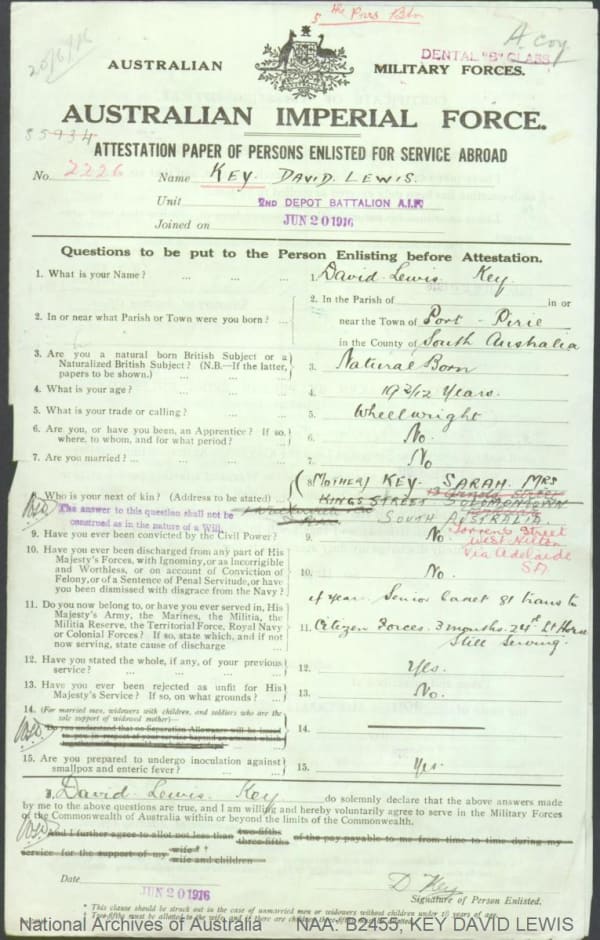 5 the Pnrs Btn
20/6/16
A Coy
DENTAL "B" CLASS
AUSTRALIAN MILITARY FORCES.
AUSTRALIAN IMPERIAL FORCE.
85934
ATTESTATION PAPER OF PERSONS ENLISTED FOR SERVICE ABROAD
No. 2226 Name KEY. DAVID LEWIS.
Unit 2ND DEPOT BATTALION A.I.F.
Joined on JUN 20 1916
Questions to be put to the Person Enlisting before Attestation.
1. What is your Name? ... ... ... 1. David Lewis Key
2. In or near what Parish or Town were you born? ... 2. In the Parish of in or
near the Town of Port - Pirie
in the County of South Australia
3. Are you a natural born British Subject or a
Naturalized British Subject? (N.B.—If the latter,
papers to be shown.) ... ... 3. Natural Born
4. What is your age? ... ... ... 4. 19 3/12 Years.
5. What is your trade or calling? ... ... 5. Wheelwright
6. Are you, or have you been, an Apprentice? If so,
where, to whom, and for what period? ... 6. No.
7. Are you married? ... ... ... 7. No
8 (MOTHER) KEY. SARAH. MRS
Who is your next of kin? (Address to be stated) ...
KINGS STREET SOLOMONTOWN
The answer to this question shall not be
construed as in the nature of a Will.
SOUTH AUSTRALIA.
Torrens Street
West Hilton
Via Adelaide
SA.
9. Have you ever been convicted by the Civil Power? 9. No.
10. Have you ever been discharged from any part of His
Majesty's Forces, with Ignominy, or as Incorrigible
and Worthless, or on account of Conviction of
Felony, or of a Sentence of Penal Servitude, or have
you been dismissed with disgrace from the Navy? 10. No.
11. Do you now belong to, or have you ever served in, His
Majesty's Army, the Marines, the Militia, the
Militia Reserve, the Territorial Force, Royal Navy
or Colonial Forces? If so, state which, and if not
now serving, state cause of discharge ...
Senior Cadet 81 trans to
11. Citizen Forces. 3 months. 24th Lt Horse
Still Serving.
12. Have you stated the whole, if any, of your previous
service? ... ... ... 12. Yes.
13. Have you ever been rejected as unfit for His
Majesty's Service? If so, on what grounds? ... 13. No.
14. (For married men, widowers with children, and soldiers who are the
sole support of widowed mother)—
Do you understand that no Separation Allowance will be issued
14.
15. Are you prepared to undergo inoculation against
smallpox and enteric fever? ... ... 15. Yes.
I, David Lewis Key do solemnly declare that the above answers made
by me to the above questions are true, and I am willing and hereby voluntarily agree to serve in the Military Forces
of the Commonwealth of Australia within or beyond the limits of the Commonwealth.
And I further agree to allot not less than two-fifths three-fifths of the pay payable to me from time to time during my
service for the support of my wife* † wife and children
Date JUN 20 1916 D Key
Signature of Person Enlisted.
* This clause should be struck out in the case of unmarried men or widowers without children under 16 years of age.
National Archives of Australia NAA: B2455, KEY DAVID LEWIS